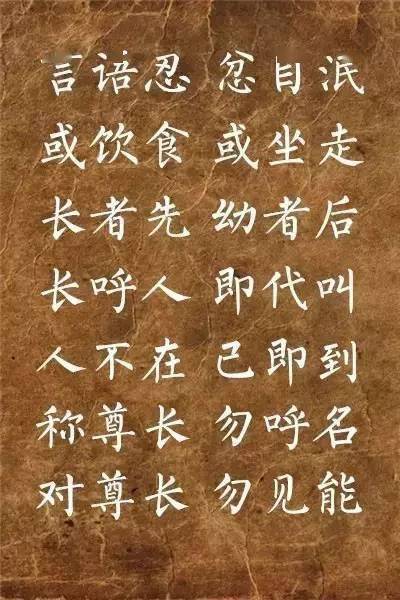 言语忍 忿自泯
或饮食 或坐走
长者先 幼者后
长呼人 即代叫
人不在 己即到
称尊长 勿呼名
对尊长 勿见能